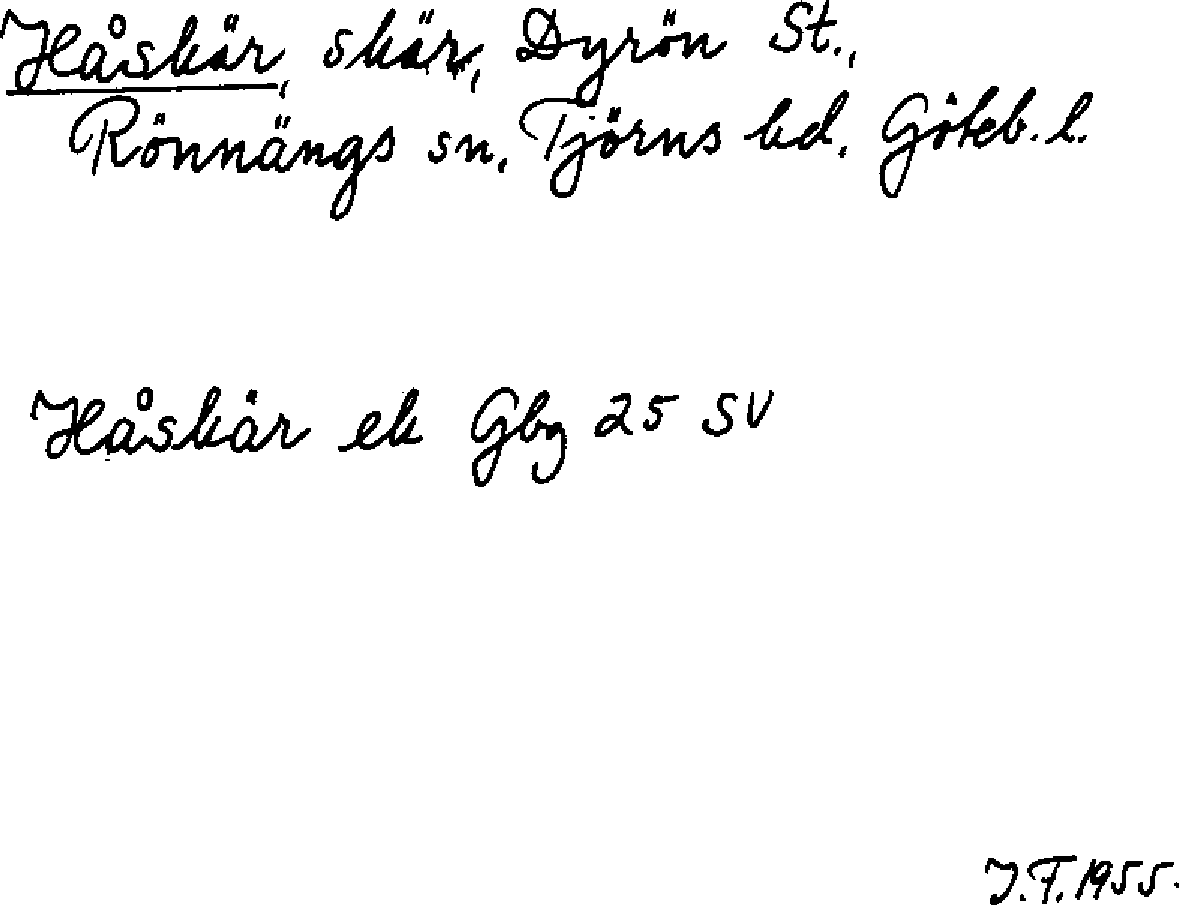 Håskär, skär, Dyrön St.,
Rönnängs sn. Tjörns hd. Göteb. l.
Håskär ek Gbg 25 SV
J.F. 1955.